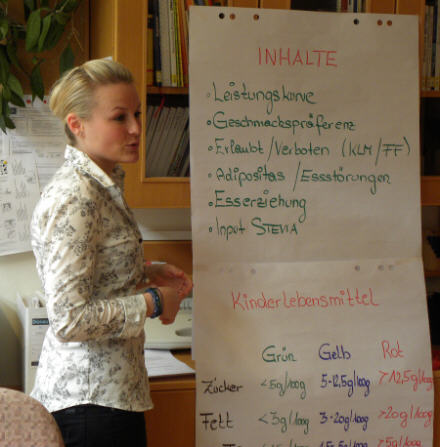 INHALTE
◦ Leistungskurve
◦ Geschmackspräferenz
◦ Erlaubt/Verboten (KLM/FF)
◦ Adipositas/Essstörungen
◦ Esserziehung
◦ Input STEVIA
Kinderlebensmittel
Grün Gelb Rot
Zucker <5g/100g 5-12,5g/100g >12,5g/100g
Fett <3g/100g 3-20g/100g >20g/100g
>5g/100g